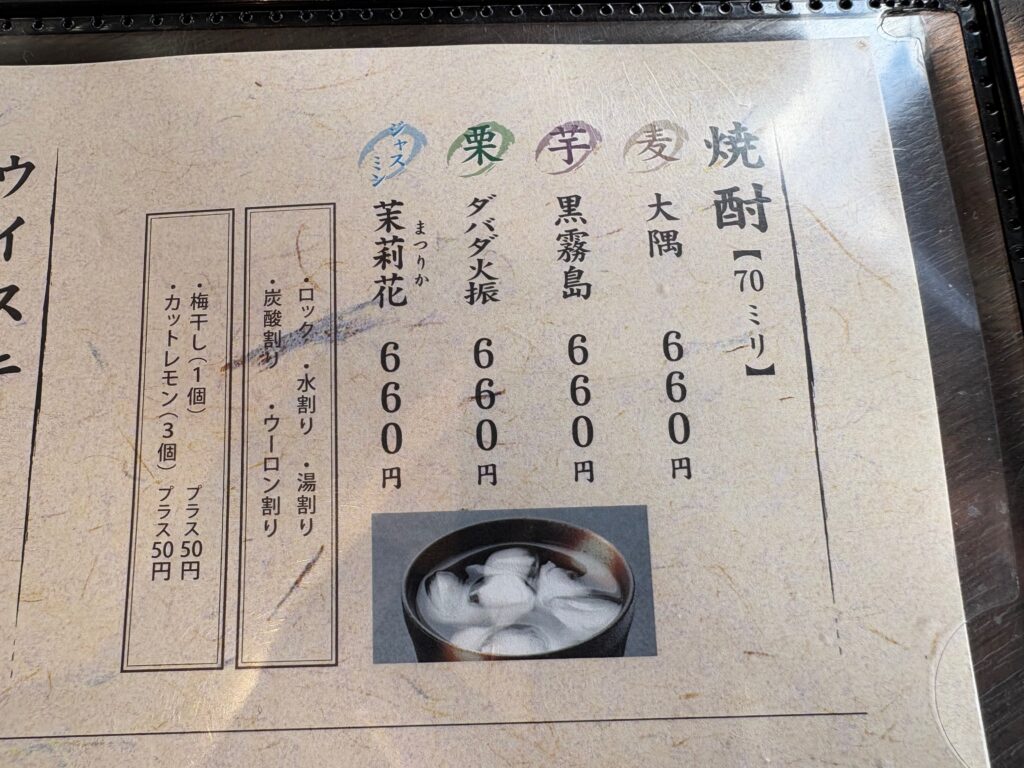 焼酎【70ミリ】
麦 大隅 660円
芋 黒霧島 660円
栗 ダバダ火振 660円
ジャスミン 茉莉花 まつりか 660円
・ロック ・水割り ・湯割り
・炭酸割り ・ウーロン割り
・梅干し(1個) プラス50円
・カットレモン(3個) プラス50円
ウイスキ